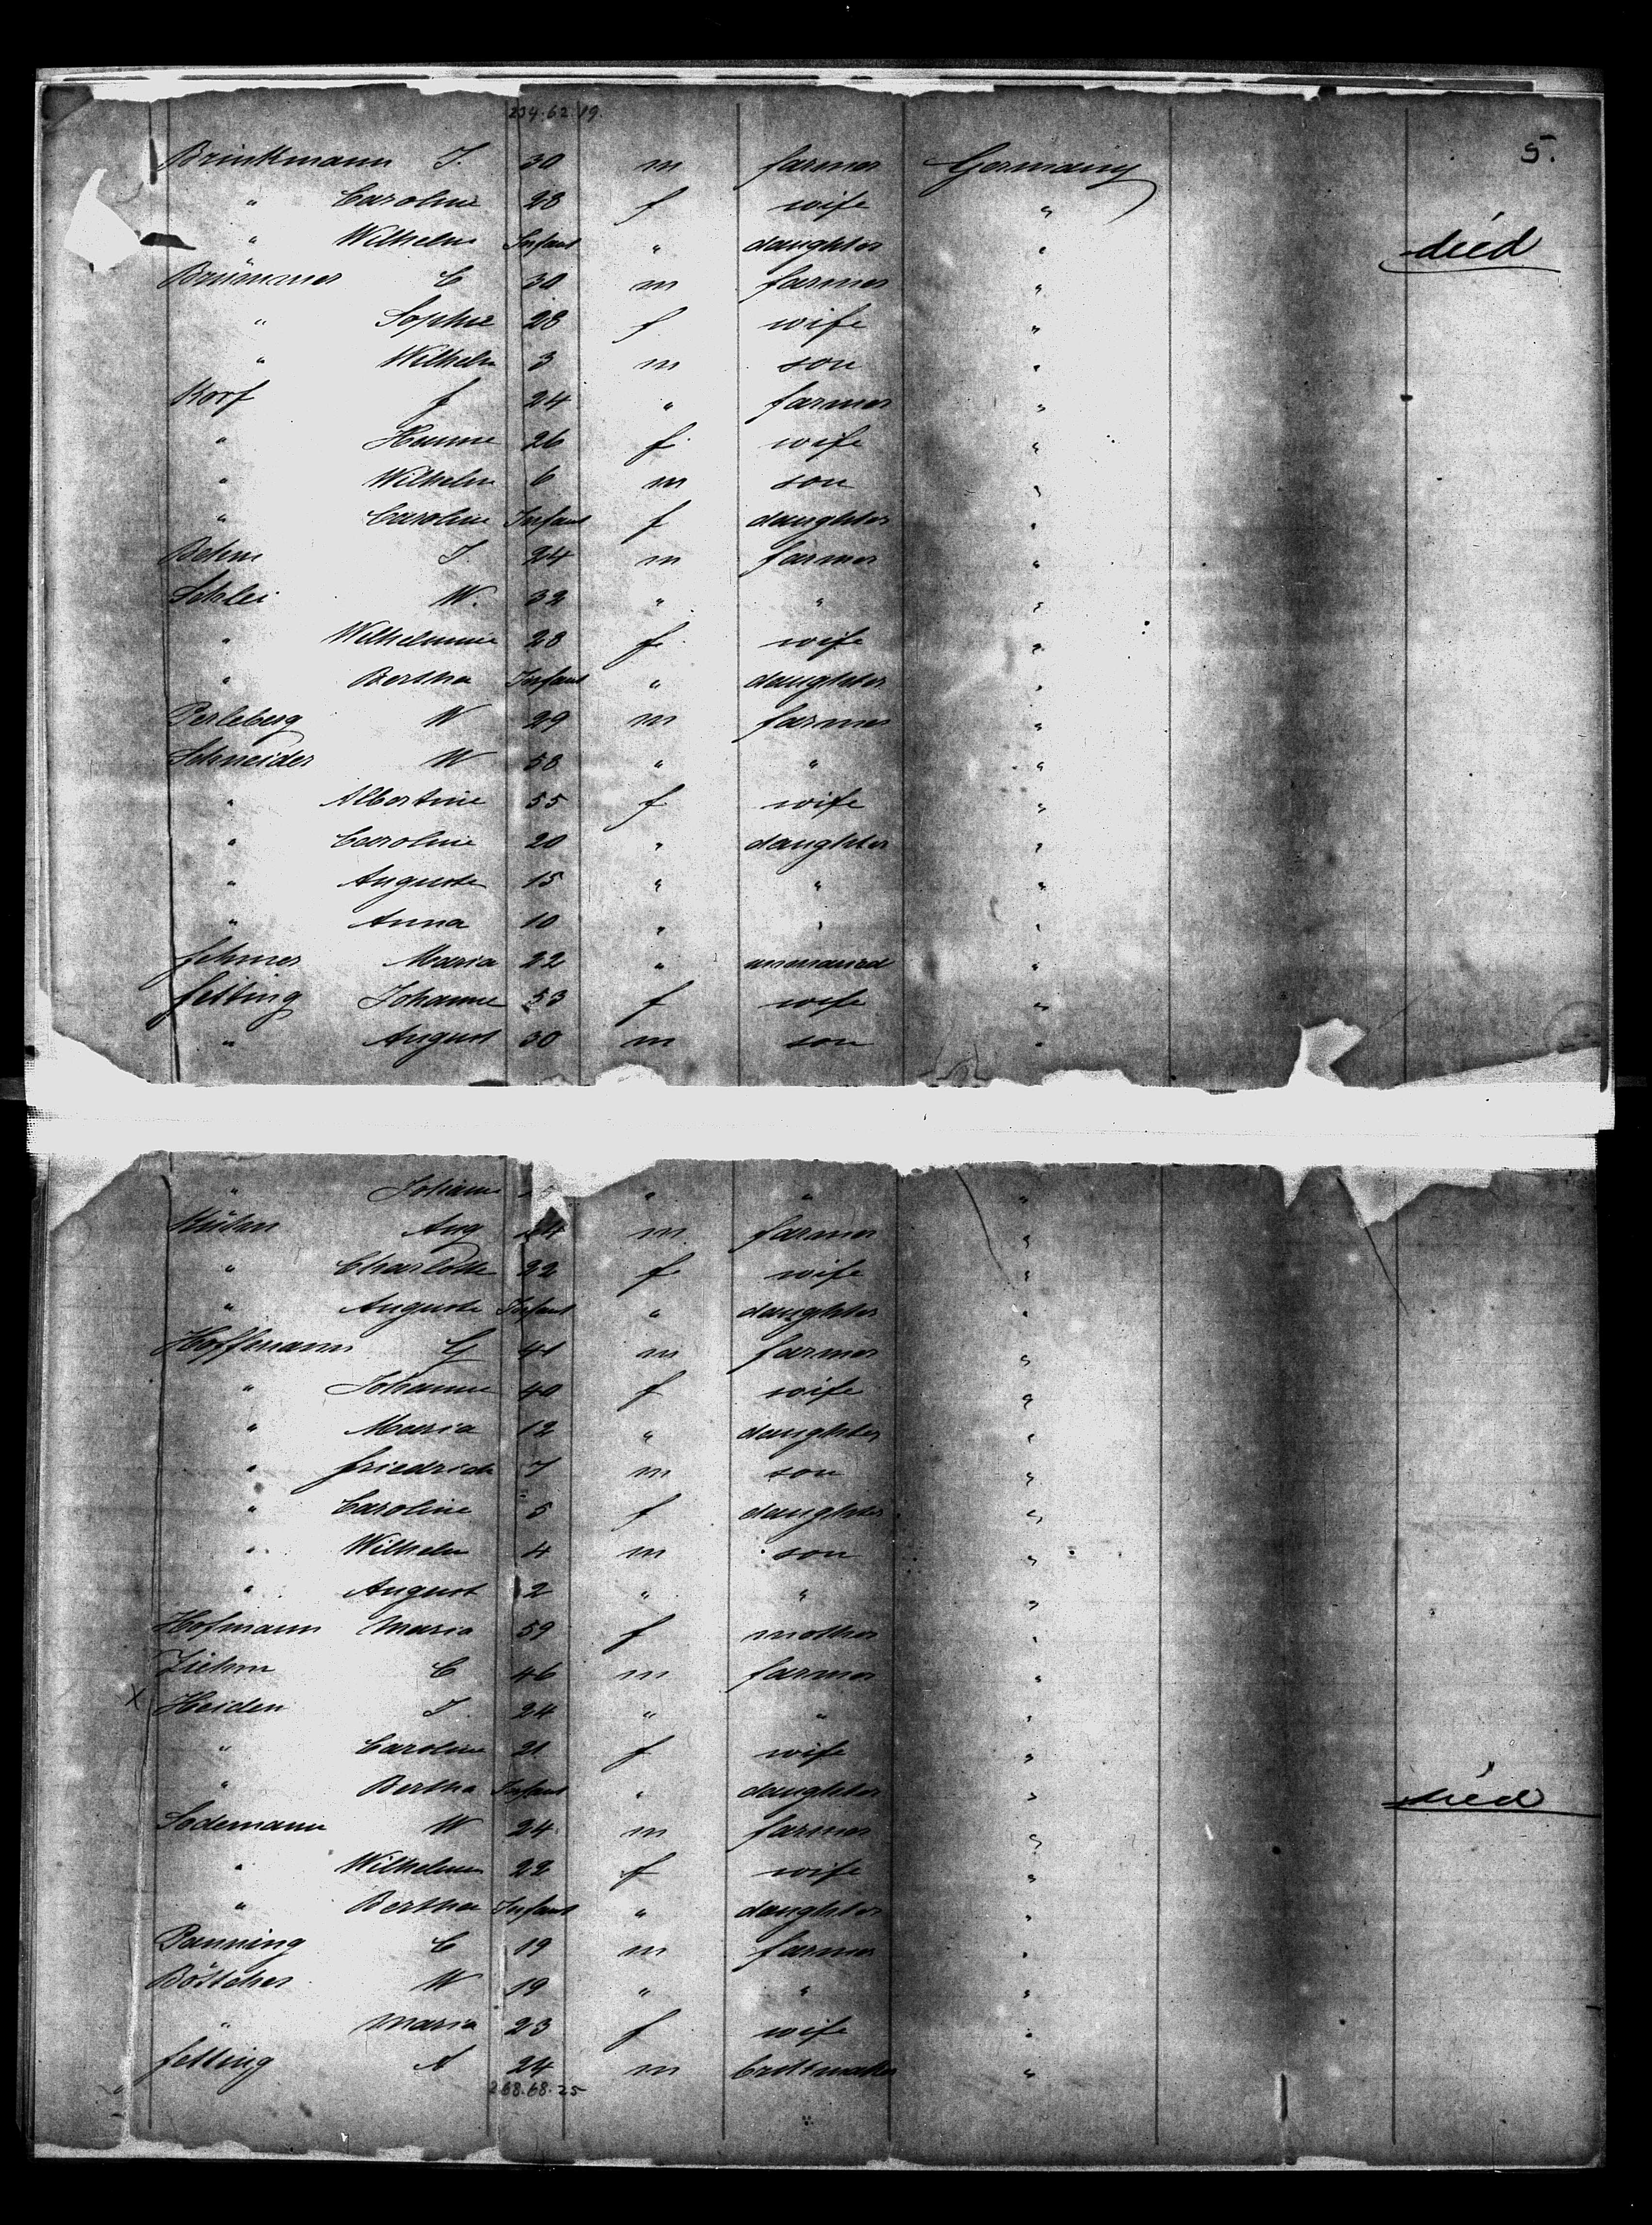 234.62.19.
5.
Brinkmann J. 30 m farmer Germany
" Caroline 28 f wife "
" Wilhelm Infant " daughter " died
Brümmer C 30 m farmer "
" Sophie 28 f wife "
" Wilhelm 3 m son "
Korf f 24 " farmer "
" Hanne 26 f wife "
" Wilhelm 6 m son "
" Caroline Infant f daughter "
Behm J. 24 m farmer "
Schlei W. 32 " " "
" Wilhelmine 28 f wife "
" Bertha Infant " daughter "
Perleberg W 29 m farmer "
Schneider W 58 " " "
" Albertine 55 f wife "
" Caroline 20 " daughter "
" Auguste 15 " " "
" Anna 10 " " "
Fehmer Maria 22 " unmarried "
Fetting Johanne 53 f wife "
" August 30 m son "
" Johann " " "
Aug 24 m farmer "
" Charlotte 22 f wife "
" Auguste Infant " daughter "
Hoffmann G 41 m farmer "
" Johanne 40 f wife "
" Maria 12 " daughter "
" Friedrich 7 m son "
" Caroline 5 f daughter "
" Wilhelm 4 m son "
" August 2 " " "
Hofmann Maria 59 f mother "
Ziehm C 46 m farmer "
x Heiden J. 24 " " "
" Caroline 21 f wife "
" Bertha Infant " daughter " died
Sodemann W 24 m farmer "
" Wilhelmine 22 f wife "
" Bertha Infant " daughter "
Panning C 19 m farmer "
Böttcher W 19 " " "
" Maria 23 f wife "
Fetting A 24 m "
268.68.25